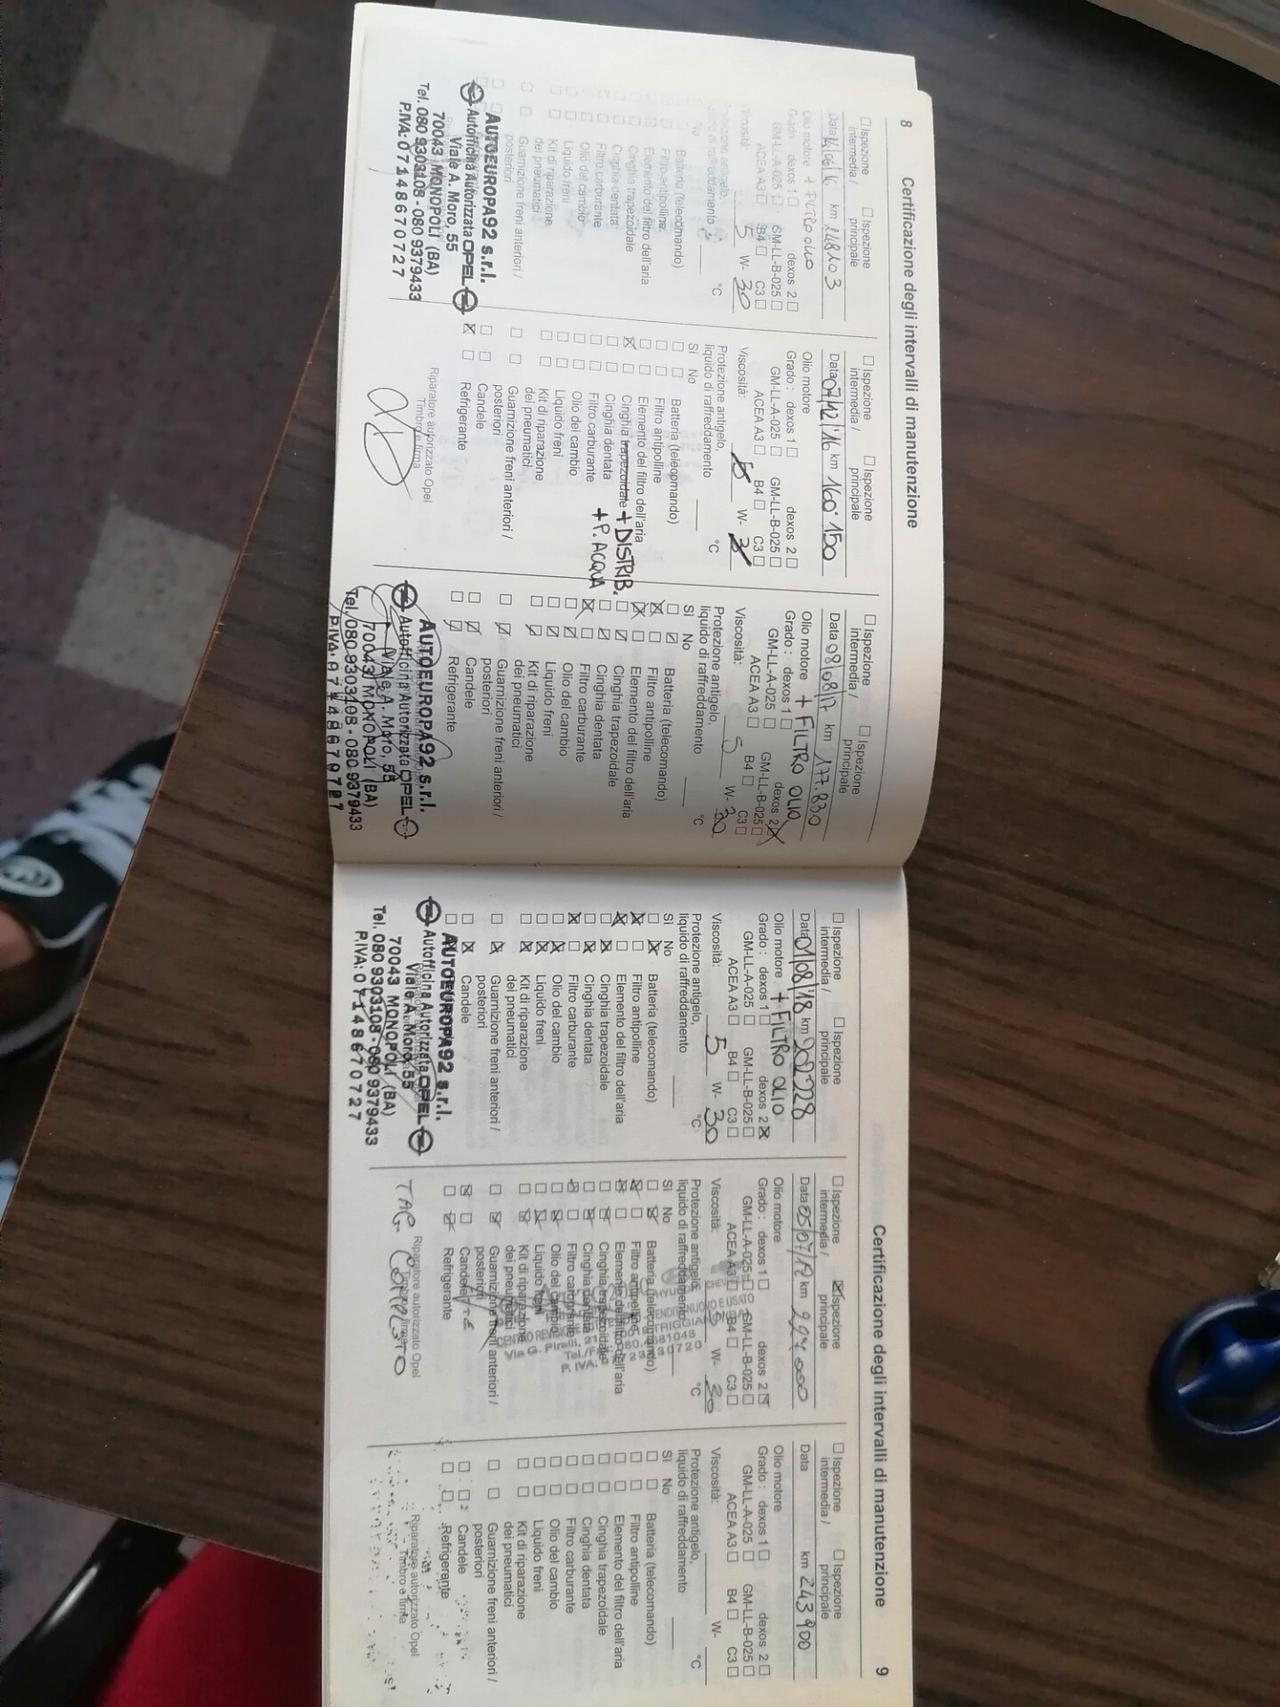 8 Certificazione degli intervalli di manutenzione
☐ Ispezione intermedia / ☐ Ispezione principale
Data km 148103
Olio motore + FILTRO OLIO
Grado: dexos 1 ☐ dexos 2 ☐
GM-LL-A-025 ☐ GM-LL-B-025 ☐
ACEA A3 ☐ B4 ☐ C3 ☐
Viscosità: 5 W- 30
Protezione antigelo,
liquido di raffreddamento °C
Sì No
☐ ☐ Batteria (telecomando)
☐ ☐ Filtro antipolline
☐ ☐ Elemento del filtro dell'aria
☐ ☐ Cinghia trapezoidale
☐ ☐ Cinghia dentata
☐ ☐ Filtro carburante
☐ ☐ Olio del cambio
☐ ☐ Liquido freni
☐ ☐ Kit di riparazione
dei pneumatici
☐ ☐ Guarnizione freni anteriori /
posteriori
AUTOEUROPA92 s.r.l.
Autofficina Autorizzata OPEL
Viale A. Moro, 55
70043 MONOPOLI (BA)
Tel. 080 9303108 - 080 9379433
P.IVA: 07148670727
☐ Ispezione intermedia / ☐ Ispezione principale
Data 07/12/16 km 160.150
Olio motore
Grado: dexos 1 ☐ dexos 2 ☐
GM-LL-A-025 ☐ GM-LL-B-025 ☐
ACEA A3 ☐ B4 ☐ C3 ☐
Viscosità: W-
Protezione antigelo,
liquido di raffreddamento °C
Sì No
☐ ☐ Batteria (telecomando)
☐ ☐ Filtro antipolline
☐ ☐ Elemento del filtro dell'aria
☒ ☐ Cinghia trapezoidale + DISTRIB.
☐ ☐ Cinghia dentata + P. ACQUA
☐ ☐ Filtro carburante
☐ ☐ Olio del cambio
☐ ☐ Liquido freni
☐ ☐ Kit di riparazione
dei pneumatici
☐ ☐ Guarnizione freni anteriori /
posteriori
☐ ☐ Candele
☒ ☐ Refrigerante
Riparatore autorizzato Opel
Timbro e firma
☐ Ispezione intermedia / ☐ Ispezione principale
Data 08/08/17 km 177.830
Olio motore + FILTRO OLIO
Grado: dexos 1 ☐ dexos 2 ☒
GM-LL-A-025 ☐ GM-LL-B-025 ☐
ACEA A3 ☐ B4 ☐ C3 ☐
Viscosità: 5 W- 30
Protezione antigelo,
liquido di raffreddamento °C
Sì No
☐ ☒ Batteria (telecomando)
☒ ☐ Filtro antipolline
☒ ☐ Elemento del filtro dell'aria
☐ ☒ Cinghia trapezoidale
☐ ☒ Cinghia dentata
☒ ☐ Filtro carburante
☐ ☒ Olio del cambio
☐ ☒ Liquido freni
☐ ☒ Kit di riparazione
dei pneumatici
☐ ☒ Guarnizione freni anteriori /
posteriori
☐ ☒ Candele
☐ ☒ Refrigerante
AUTOEUROPA92 s.r.l.
Autofficina Autorizzata OPEL
Viale A. Moro, 55
70043 MONOPOLI (BA)
Tel. 080 9303108 - 080 9379433
P.IVA: 07148670727
Certificazione degli intervalli di manutenzione 9
☐ Ispezione intermedia / ☐ Ispezione principale
Data 01/08/18 km 202228
Olio motore + FILTRO OLIO
Grado: dexos 1 ☐ dexos 2 ☒
GM-LL-A-025 ☐ GM-LL-B-025 ☐
ACEA A3 ☐ B4 ☐ C3 ☐
Viscosità: 5 W- 30
Protezione antigelo,
liquido di raffreddamento °C
Sì No
☐ ☒ Batteria (telecomando)
☒ ☐ Filtro antipolline
☒ ☐ Elemento del filtro dell'aria
☐ ☒ Cinghia trapezoidale
☐ ☒ Cinghia dentata
☒ ☐ Filtro carburante
☐ ☒ Olio del cambio
☐ ☒ Liquido freni
☐ ☒ Kit di riparazione
dei pneumatici
☐ ☒ Guarnizione freni anteriori /
posteriori
☐ ☒ Candele
AUTOEUROPA92 s.r.l.
Autofficina Autorizzata OPEL
Viale A. Moro, 55
70043 MONOPOLI (BA)
Tel. 080 9303108 - 080 9379433
P.IVA: 07148670727
☐ Ispezione intermedia / ☒ Ispezione principale
Data km
Olio motore
Grado: dexos 1 ☐ dexos 2 ☒
GM-LL-A-025 ☐ GM-LL-B-025 ☐
ACEA A3 ☐ B4 ☐ C3 ☐
Viscosità: W- 30
Protezione antigelo,
liquido di raffreddamento °C
Sì No
☐ ☒ Batteria (telecomando)
☒ ☐ Filtro antipolline
☒ ☐ Elemento del filtro dell'aria
☐ ☒ Cinghia trapezoidale
☐ ☒ Cinghia dentata
☒ ☐ Filtro carburante
☐ ☒ Olio del cambio
☐ ☒ Liquido freni
☐ ☒ Kit di riparazione
dei pneumatici
☐ ☒ Guarnizione freni anteriori /
posteriori
☒ ☐ Candele
☐ ☒ Refrigerante
Via G. Pirelli,
P. IVA:
Riparatore autorizzato Opel
Timbro e firma
☐ Ispezione intermedia / ☐ Ispezione principale
Data km 243900
Olio motore
Grado: dexos 1 ☐ dexos 2 ☐
GM-LL-A-025 ☐ GM-LL-B-025 ☐
ACEA A3 ☐ B4 ☐ C3 ☐
Viscosità: W-
Protezione antigelo,
liquido di raffreddamento °C
Sì No
☐ ☐ Batteria (telecomando)
☐ ☐ Filtro antipolline
☐ ☐ Elemento del filtro dell'aria
☐ ☐ Cinghia trapezoidale
☐ ☐ Cinghia dentata
☐ ☐ Filtro carburante
☐ ☐ Olio del cambio
☐ ☐ Liquido freni
☐ ☐ Kit di riparazione
dei pneumatici
☐ ☐ Guarnizione freni anteriori /
posteriori
☐ ☐ Candele
☐ ☐ Refrigerante
Riparatore autorizzato Opel
Timbro e firma